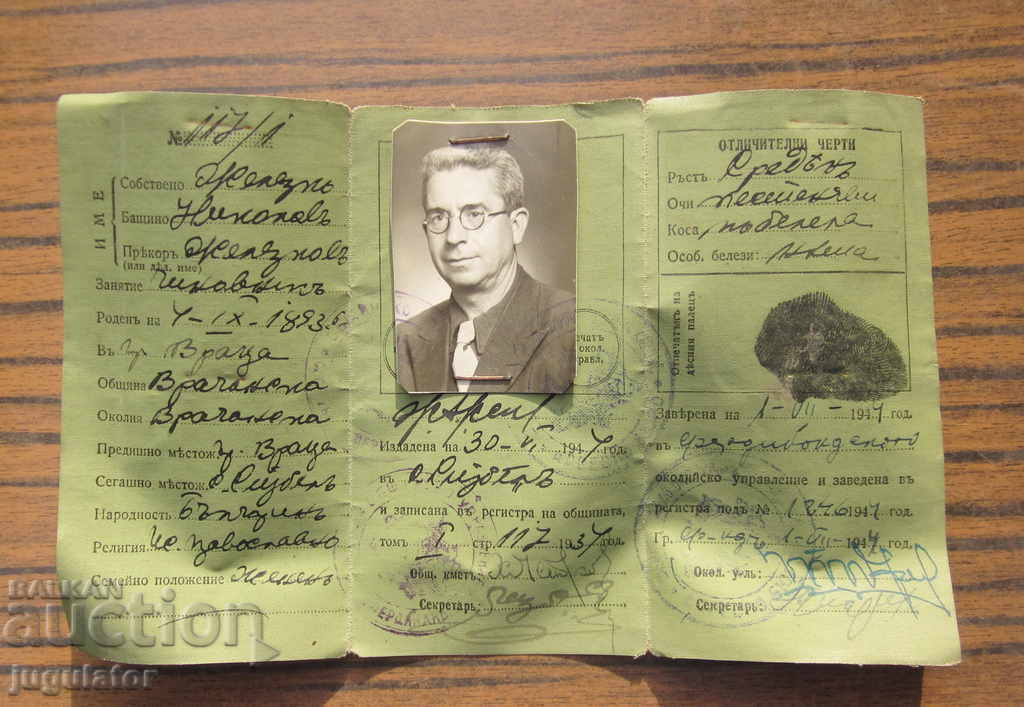 № 117/1
ИМЕ
Собствено Железнъ
Бащино Николовъ
Прѣкоръ Железновъ
(или дѣл. име)
Занятие Чиновникъ
Роденъ на 4-IX-1893 г.
Въ гр. Враца
Община Врачанска
Околия Врачанска
Предишно мѣстож. гр. Враца
Сегашно мѣстож. с.
Народность Българинъ
Религия Ис. Православно
Семейно положение Жененъ
Издадена на 30-VI 1947 год.
въ с.
и записана въ регистра на общината,
томъ I стр. 117 1937 год.
Общ. кметъ:
Секретарь:
ОТЛИЧИТЕЛНИ ЧЕРТИ
Ръстъ Срѣденъ
Очи пъстеняви
Коса побелела
Особ. белези: няма
Отпечатъкъ на
дѣсния палецъ
Завѣрена на 1-VII-1947 год.
въ
околийско управление и заведена въ
регистра подъ № 1947 год.
Гр. 1-VII-1947 год.
Окол. у-ль:
Секретарь:
BALKAN
auction
jugulator